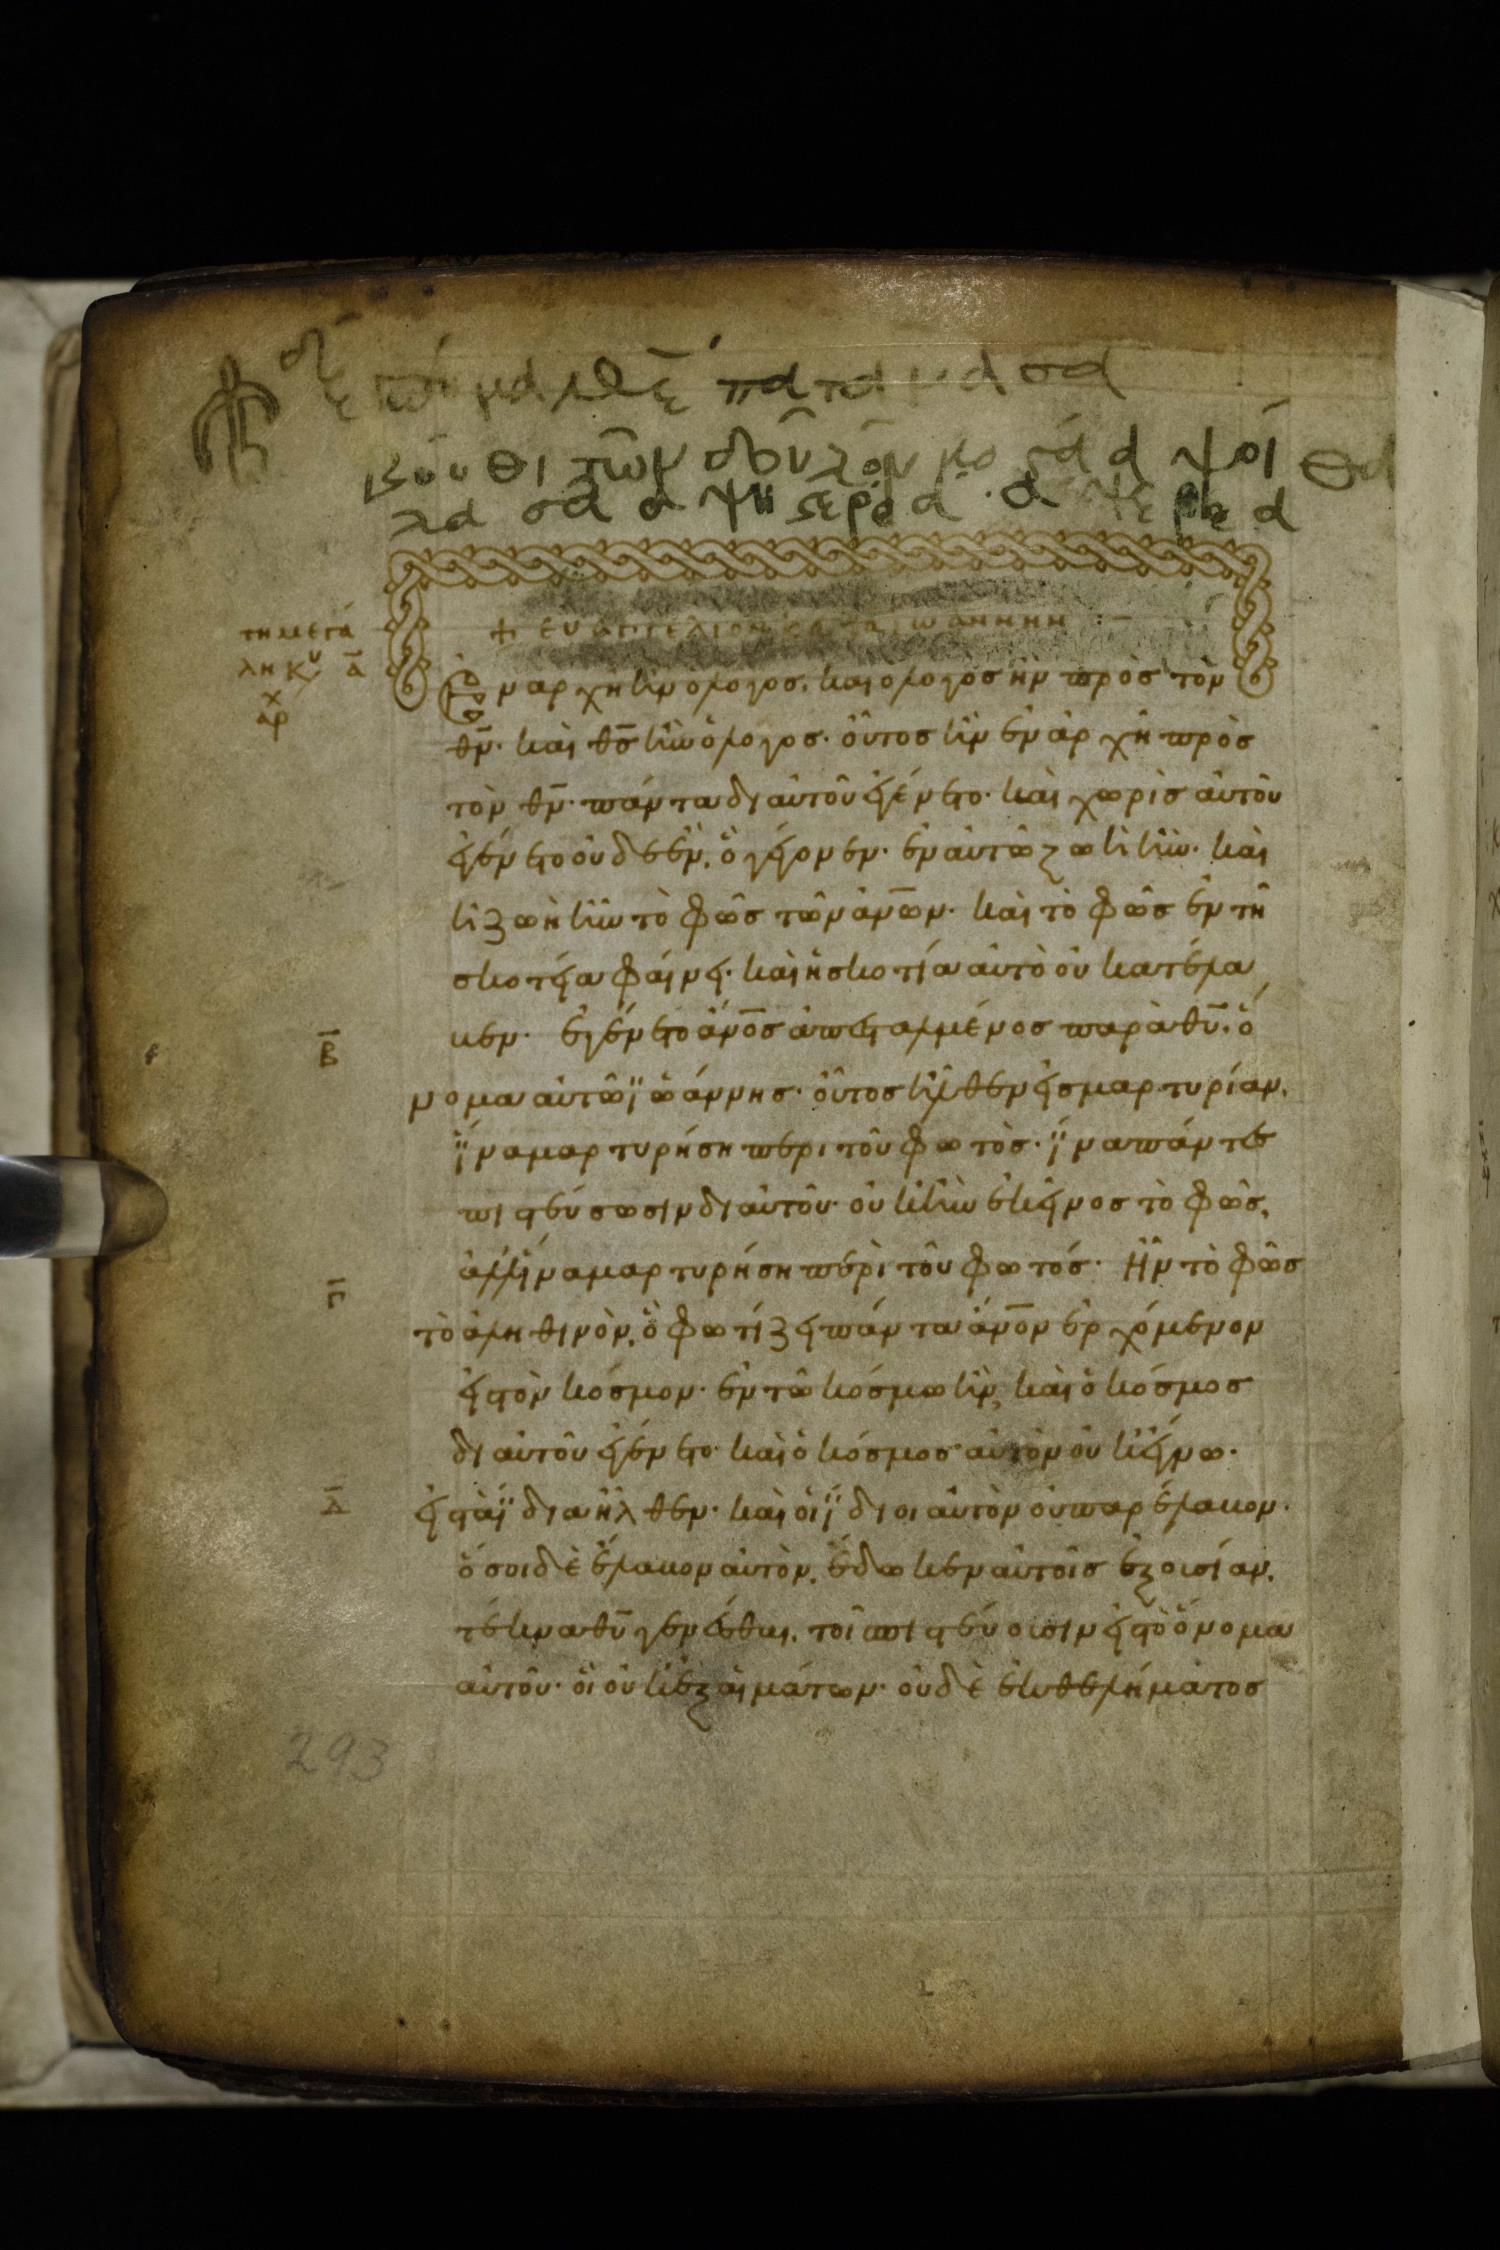 βοήθει τῶν δοῦλον
τη μεγά
λη κυ α
αρ
+ ευαγγελιον κατα ιωαννην :-
Ἐν αρχη ἦν ο λογος. και ο λογος ἦν πρὸς τὸν
θν̄· καὶ θς̄ ἦν ὁ λογος· οὗτος ἦν ἐν ἀρχῆ πρὸς
τὸν θν̄· πάντα δι αὐτοῦ ἐγένετο· καὶ χωρὶς αὐτοῦ
ἐγένετο οὐδε ἕν. ὃ γέγονεν· ἐν αὐτῶ ζωὴ ἦν· καὶ
ἡ ζωὴ ἦν τὸ φῶς τῶν ἀνω̄ν· καὶ τὸ φῶς ἐν τῆ
σκοτία φαίνει· καὶ ἡ σκοτία αὐτὸ οὐ κατέλα
βεν· ἐγένετο ἄνος̄ ἀπεσταλμένος παρὰ θῡ· ὄ
νομα αὐτῶ ϊωάννης· οὗτος ἦλθεν εἰς μαρτυρίαν.
ἵνα μαρτυρήση περι τοῦ φωτὸς· ἵνα πάντες
πιστεύσωσιν δι αὐτοῦ· οὐκ ἦν ἐκεῖνος τὸ φῶς.
ἀλλ ἵνα μαρτυρήση περὶ τοῦ φωτός· Ἦν τὸ φῶς
τὸ ἀληθινὸν. ὃ φωτίζει πάντα ἄνον̄ ἐρχόμενον
εἰς τὸν κόσμον· ἐν τῶ κόσμω ἦν, καὶ ὁ κόσμος
δι αὐτοῦ ἐγένετο· καὶ ὁ κόσμος αὐτὸν οὐκ ἔγνω·
εἰς τὰ ϊδια ἦλθεν· καὶ οἱ ϊδιοι αὐτὸν οὐ παρέλαβον·
ὅσοι δὲ ἔλαβον αὐτὸν. ἔδωκεν αὐτοῖς ἐξουσίαν.
τέκνα θῡ γενέσθαι. τοῖ πιστεύουσιν εἰς τὸ ὄνομα
αὐτοῦ· οἳ οὐκ ἐξ αἱμάτων· οὐδὲ ἐκ θελήματος
β
γ
δ
293